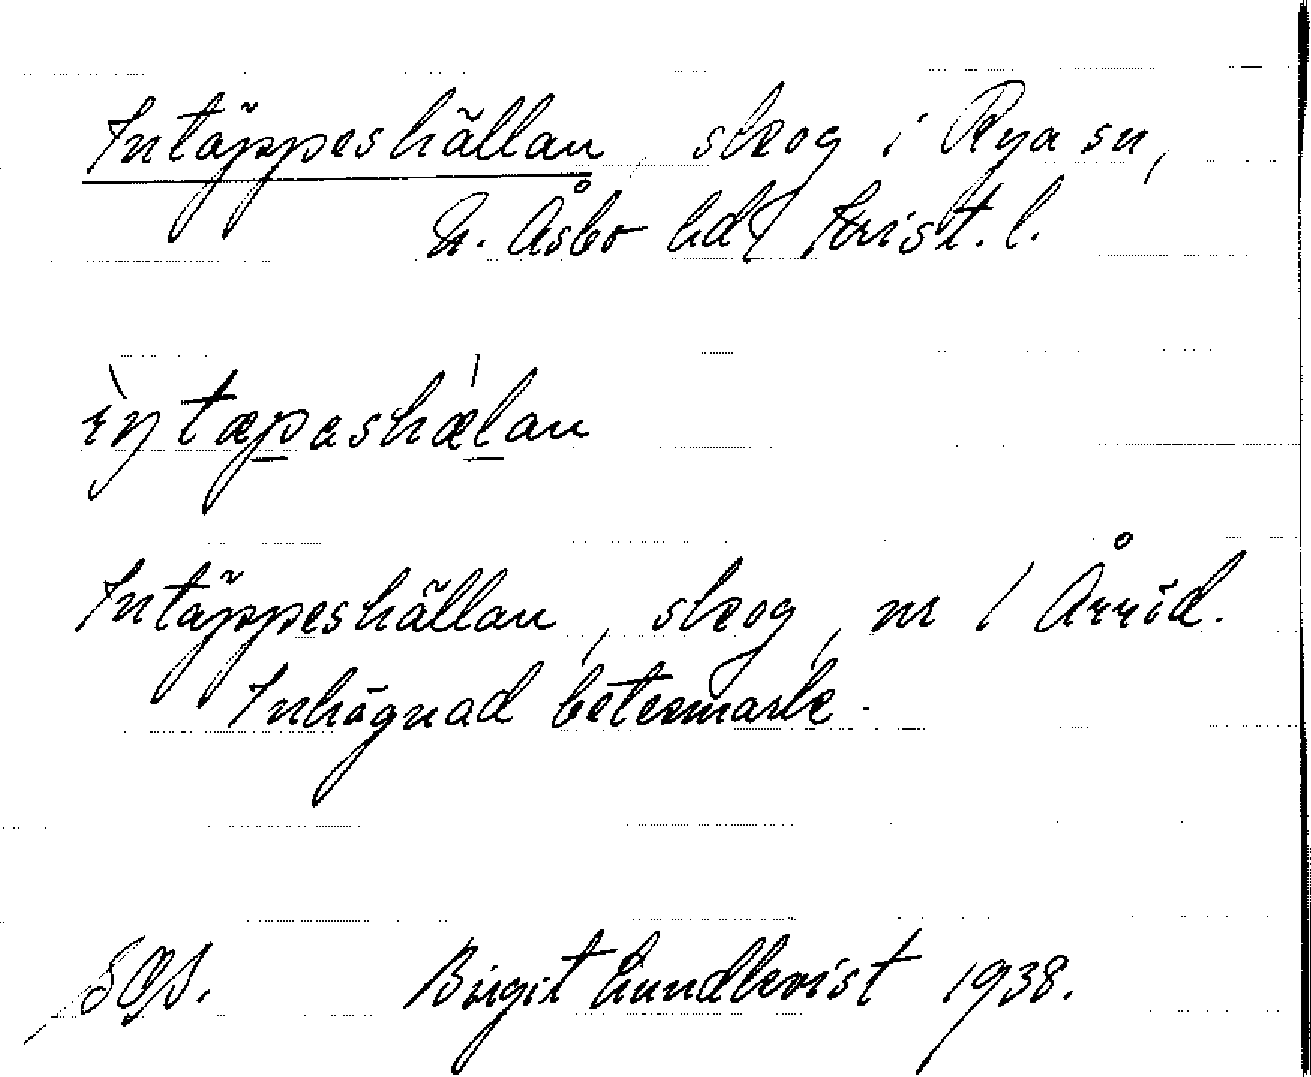 Intäppeshällan, skog i Rya sn,
N. Åsbo hd Krist. l.
ìntæpashæ̍lan
Intäppeshällan, skog, nr 1 Årröd.
Inhägnad betesmark.
Birgit Lundkvist 1938.